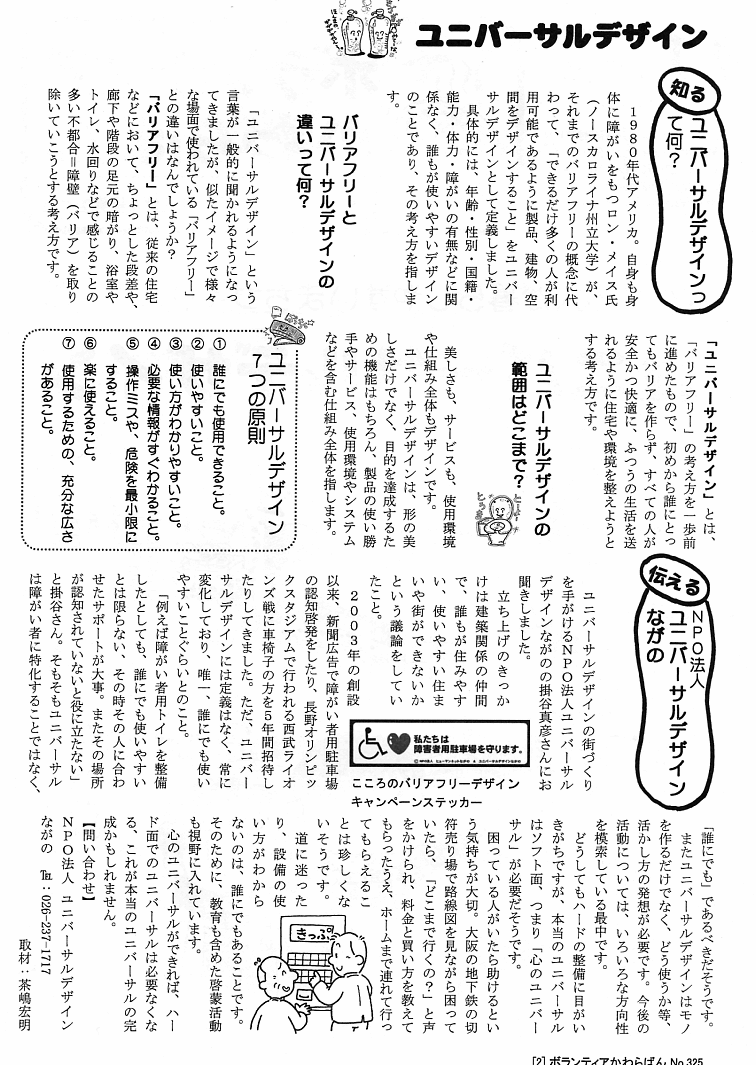 ユニバーサルデザイン
知る
ユニバーサルデザインっ
て何？
1980年代アメリカ。自身も身
体に障がいをもつロン・メイス氏
（ノースカロライナ州立大学）が、
それまでのバリアフリーの概念に代
わって、「できるだけ多くの人が利
用可能であるように製品、建物、空
間をデザインすること」をユニバー
サルデザインとして定義しました。
具体的には、年齢・性別・国籍・
能力・体力・障がいの有無などに関
係なく、誰もが使いやすいデザイン
のことであり、その考え方を指しま
す。
バリアフリーと
ユニバーサルデザインの
違いって何？
「ユニバーサルデザイン」という
言葉が一般的に聞かれるようになっ
てきましたが、似たイメージで様々
な場面で使われている「バリアフリー」
との違いはなんでしょうか？
「バリアフリー」とは、従来の住宅
などにおいて、ちょっとした段差や、
廊下や階段の足元の暗がり、浴室や
トイレ、水回りなどで感じることの
多い不都合＝障壁（バリア）を取り
除いていこうとする考え方です。
「ユニバーサルデザイン」とは、
「バリアフリー」の考え方を一歩前
に進めたもので、初めから誰にとっ
てもバリアを作らず、すべての人が
安全かつ快適に、ふつうの生活を送
れるように住宅や環境を整えようと
する考え方です。
ユニバーサルデザインの
範囲はどこまで？
美しさも、サービスも、使用環境
や仕組み全体もデザインです。
ユニバーサルデザインは、形の美
しさだけでなく、目的を達成するた
めの機能はもちろん、製品の使い勝
手やサービス、使用環境やシステム
などを含む仕組み全体を指します。
ユニバーサルデザイン
7つの原則
① 誰にでも使用できること。
② 使いやすいこと。
③ 使い方がわかりやすいこと。
④ 必要な情報がすぐわかること。
⑤ 操作ミスや、危険を最小限に
すること。
⑥ 楽に使えること。
⑦ 使用するための、充分な広さ
があること。
伝える
NPO法人
ユニバーサルデザイン
ながの
ユニバーサルデザインの街づくり
を手がけるNPO法人ユニバーサル
デザインながのの掛谷真彦さんにお
聞きしました。
立ち上げのきっか
けは建築関係の仲間
で、誰もが住みやす
い、使いやすい住ま
いや街ができないか
という議論をしてい
たこと。
2003年の創設
以来、新聞広告で障がい者用駐車場
の認知啓発をしたり、長野オリンピッ
クスタジアムで行われる西武ライオ
ンズ戦に車椅子の方を5年間招待し
たりしてきました。ただ、ユニバー
サルデザインには定義はなく、常に
変化しており、唯一、誰にでも使い
やすいことぐらいとのこと。
「例えば障がい者用トイレを整備
したとしても、誰にでも使いやすい
とは限らない、その時その人に合わ
せたサポートが大事。またその場所
が認知されていないと役に立たない」
と掛谷さん。そもそもユニバーサル
は障がい者に特化することではなく、
私たちは
障害者用駐車場を守ります。
こころのバリアフリーデザイン
キャンペーンステッカー
「誰にでも」であるべきだそうです。
またユニバーサルデザインはモノ
を作るだけでなく、どう使うか等、
活かし方の発想が必要です。今後の
活動については、いろいろな方向性
を模索している最中です。
どうしてもハードの整備に目がい
きがちですが、本当のユニバーサル
はソフト面、つまり「心のユニバー
サル」が必要だそうです。
困っている人がいたら助けるとい
う気持ちが大切。大阪の地下鉄の切
符売り場で路線図を見ながら困って
いたら、「どこまで行くの？」と声
をかけられ、料金と買い方を教えて
もらったうえ、ホームまで連れて行っ
てもらえるこ
とは珍しくな
いそうです。
道に迷った
り、設備の使
い方がわから
ないのは、誰にでもあることです。
そのために、教育も含めた啓蒙活動
も視野に入れています。
心のユニバーサルができれば、ハー
ド面でのユニバーサルは必要なくな
る、これが本当のユニバーサルの完
成かもしれません。
【問い合わせ】
NPO法人 ユニバーサルデザイン
ながの ℡：026-237-1717
取材：茶嶋宏明
きっぷ
[2] ボランティアかわらばん No.325